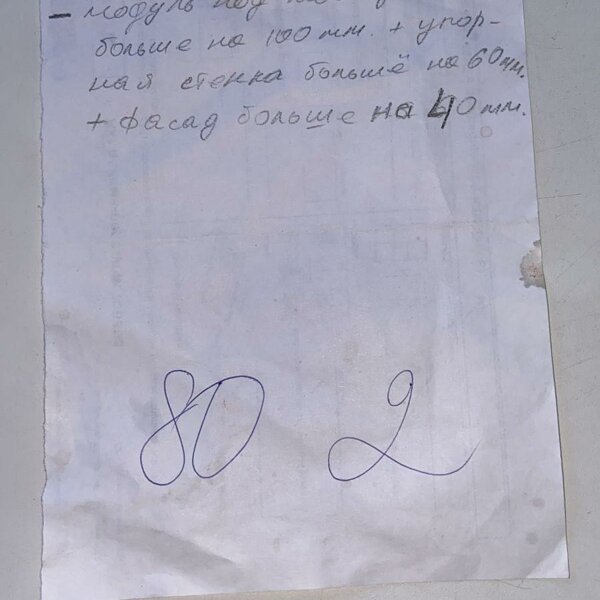 – модуль под
больше на 100 мм. + упор-
ная стенка больше на 60 мм.
+ фасад больше на 40 мм.
80 2